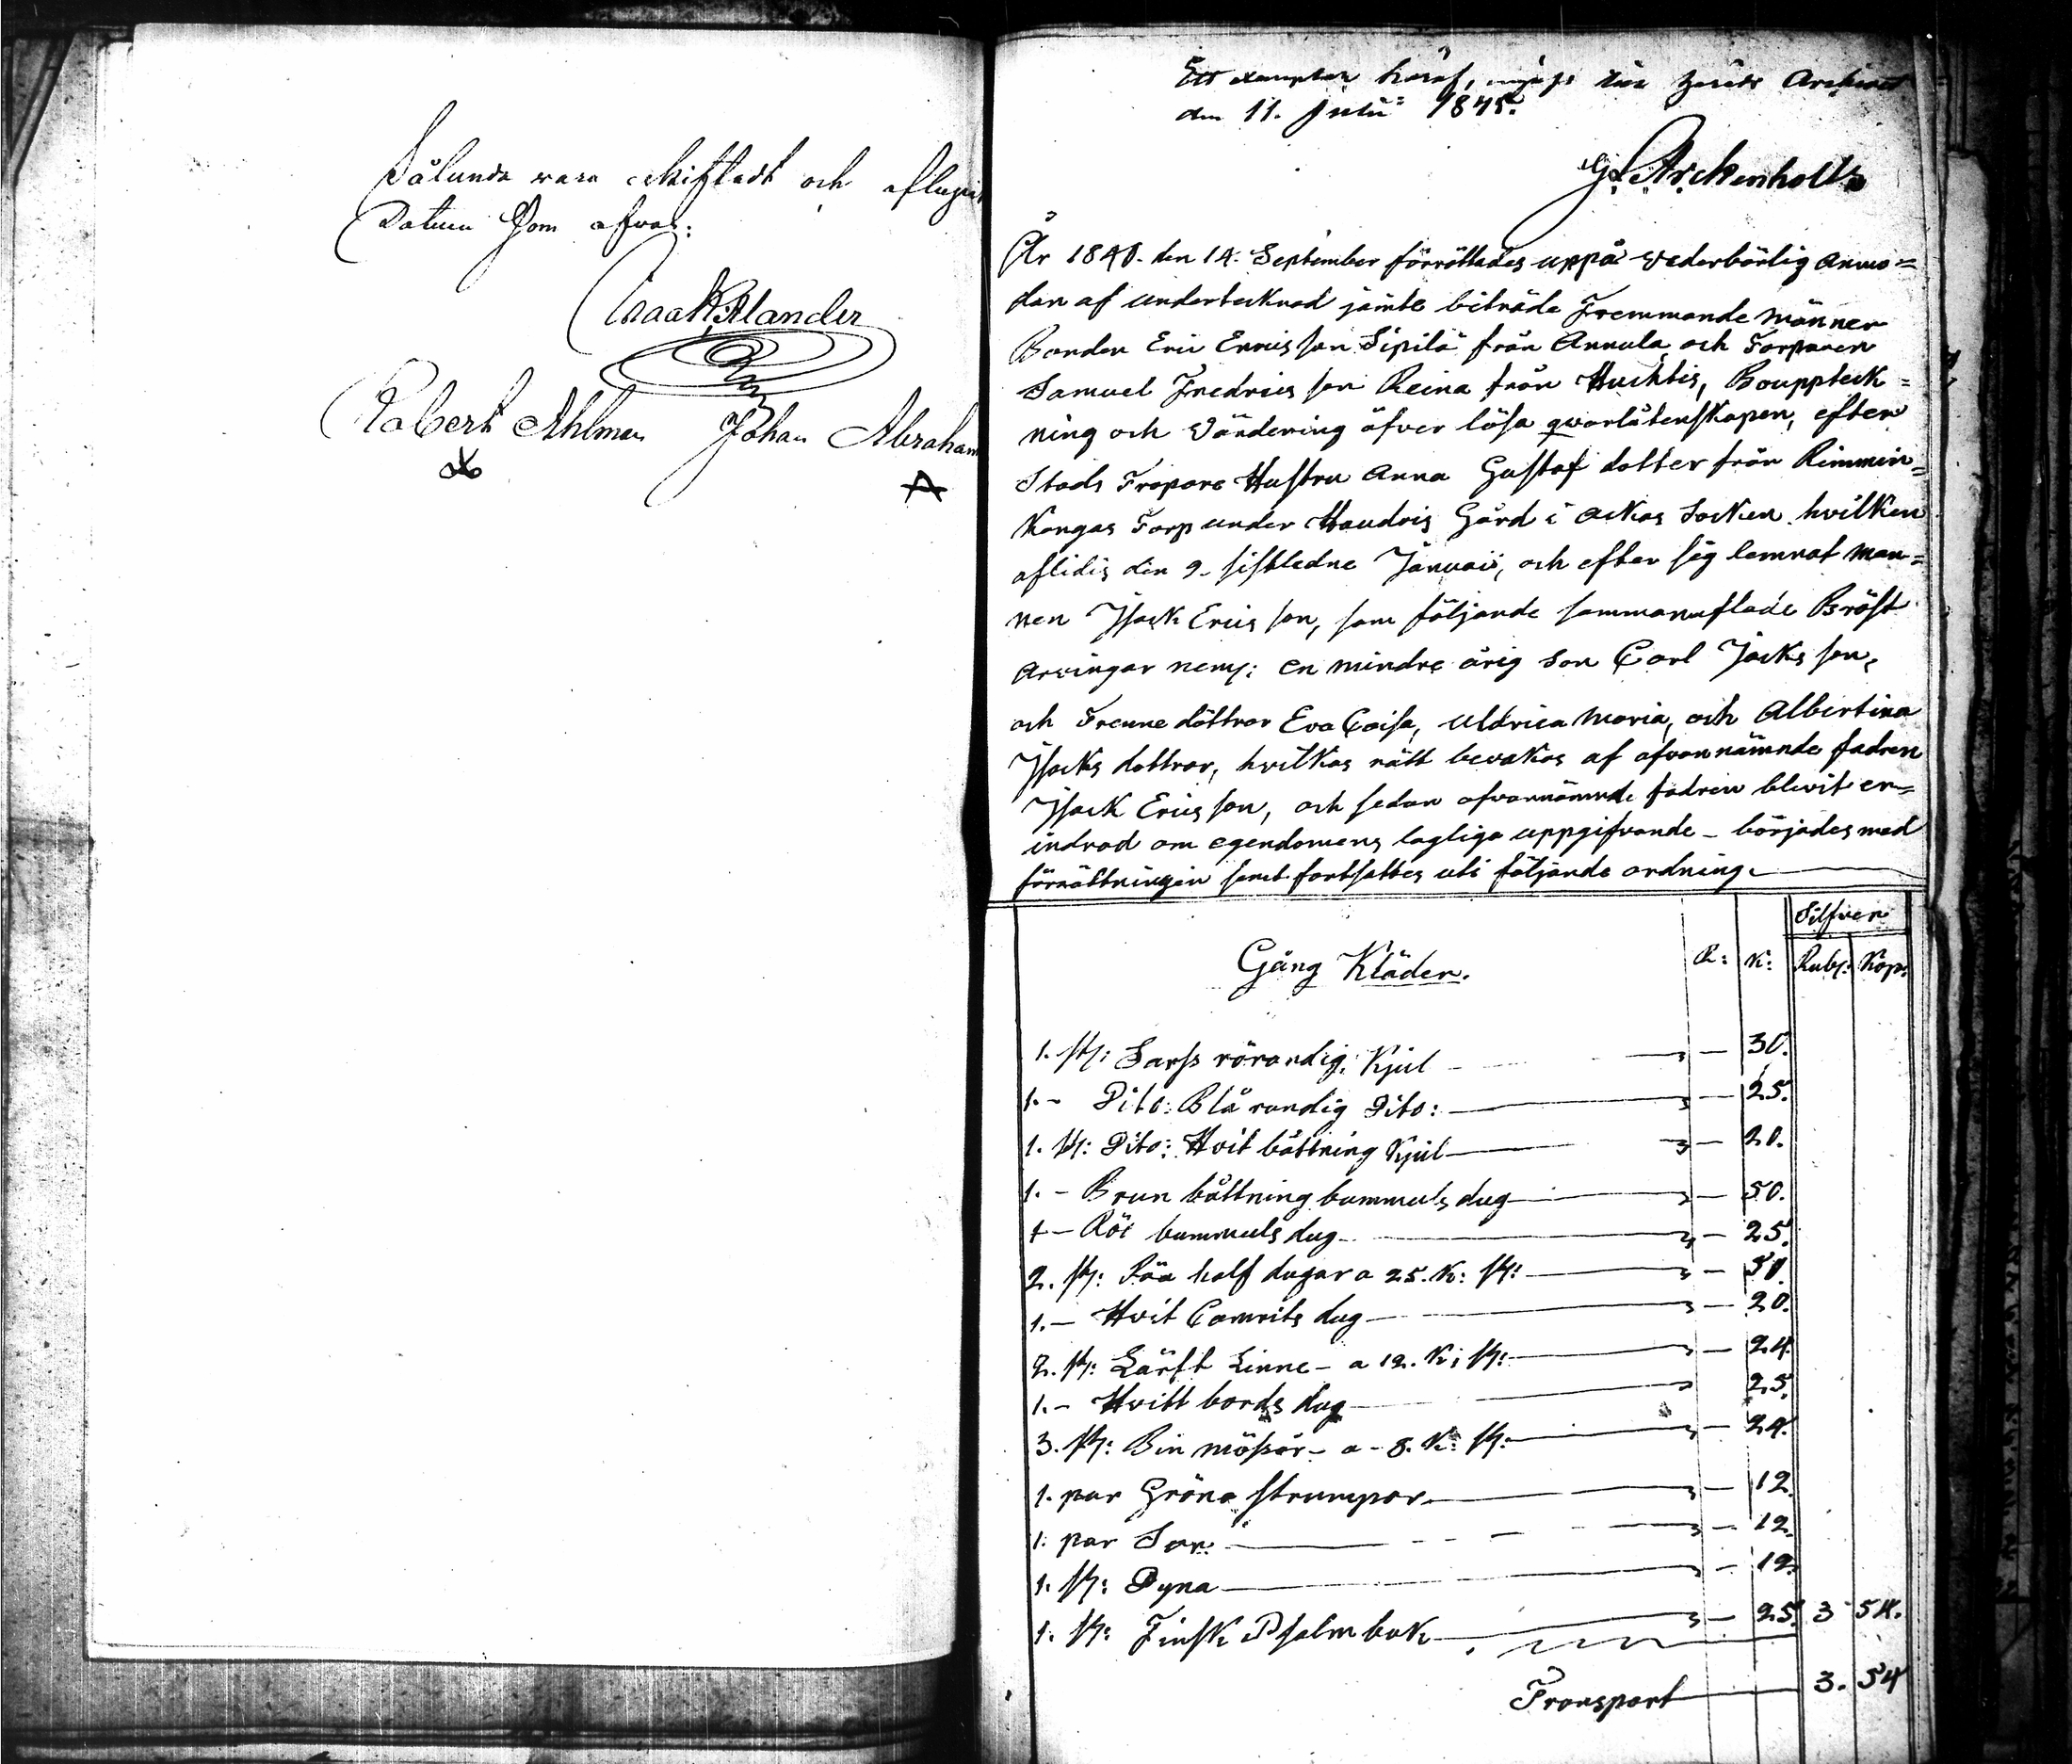 Sålunda vara skiftadt och aflupit
Datum Som ofvan:
Isaac Kjlander
Robert Ahlman Johan Abraham
Ett exemplar häraf, ingifvit til Härads Archivet
den 11. Julii 1845.
G. Arckenholtz
År 1840. den 14. September förrättades uppå vederbörlig anmo=
dan af undertecknad jämte biträde Fremmande männer
Bonden Eric Ericsson Sipilä från Annula och Torparen
Samuel Fredricsson Reina från Huchtis, Bouppteck=
ning och Värdering öfver lösa qvarlåtenskapen, efter
Stads Troparc Hustru Anna Gustaf dotter från Rimmin=
Kangas Torp under Haudois Gård i Ackas Socken hvilken
aflidis den 9. sistledne Januaii, och efter sig lemnat man=
nen Isack Ericsson, som följande sammanaflade Bröst
arvingar neml: en mindre årig Son Carl Jsacks son,
och Trenne döttrar Eva Caisa, Uldrica Maria, och Albertina
Jsacks dottrar, hvilkas rätt bevakas af ofvannämnde fadren
Jsack Ericsson, och sedan ofvannämnde fadren blivit er=
indrad om egendomens lagliga uppgifvande – börjades med
förrättningen samt fortsattes uti följande ordning.
Silfver
Gång Kläder. R: K: Rubl: Kop:
1. st: Sarss rörandig. Kjul „ — 30.
1. – Dito: Blå randig Dito: „ — 25.
1. st: Dito: Hvit båttning Kjul „ — 20.
1. – Brun båttning bummuls dug „ — 50.
1 – Röt bummuls dug „ — 25.
2. st: Råa half dugar a 25. K: st: „ — 50.
1. – Hvit Camrits dug „ — 20.
2. st: Lärft Linne – a 12. K: st: „ — 24.
1. – Hvitt bords dug 25.
3. st: Bin mössor – a – 8. K: st: „ — 24.
1. par Gröna strumpor „ — 12.
1. par Sor „ — 12.
1. st: Dyna „ — 12.
1. st: Finsk Psalm bok „ — 25. 3 54.
Transport 3. 54